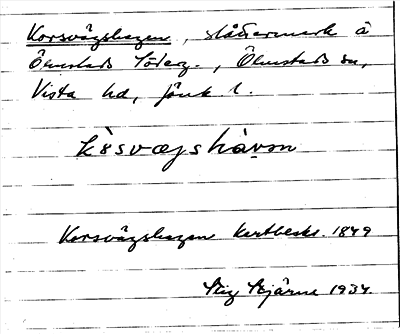 Korsvägshagen, slåttermark å
Ölmstads Söderg., Ölmstads sn,
Vista hd, Jönk l.
kòsvægshàvɷn
Korsvägshagen kartbeskr. 1849
Stig Bjärne 1934.